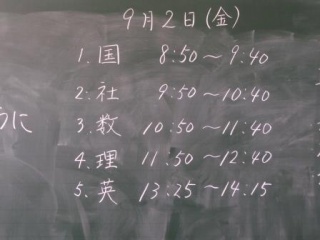 9月2日(金)
1.国 8:50～9:40
2.社 9:50～10:40
3.数 10:50～11:40
4.理 11:50～12:40
5.英 13:25～14:15
うに